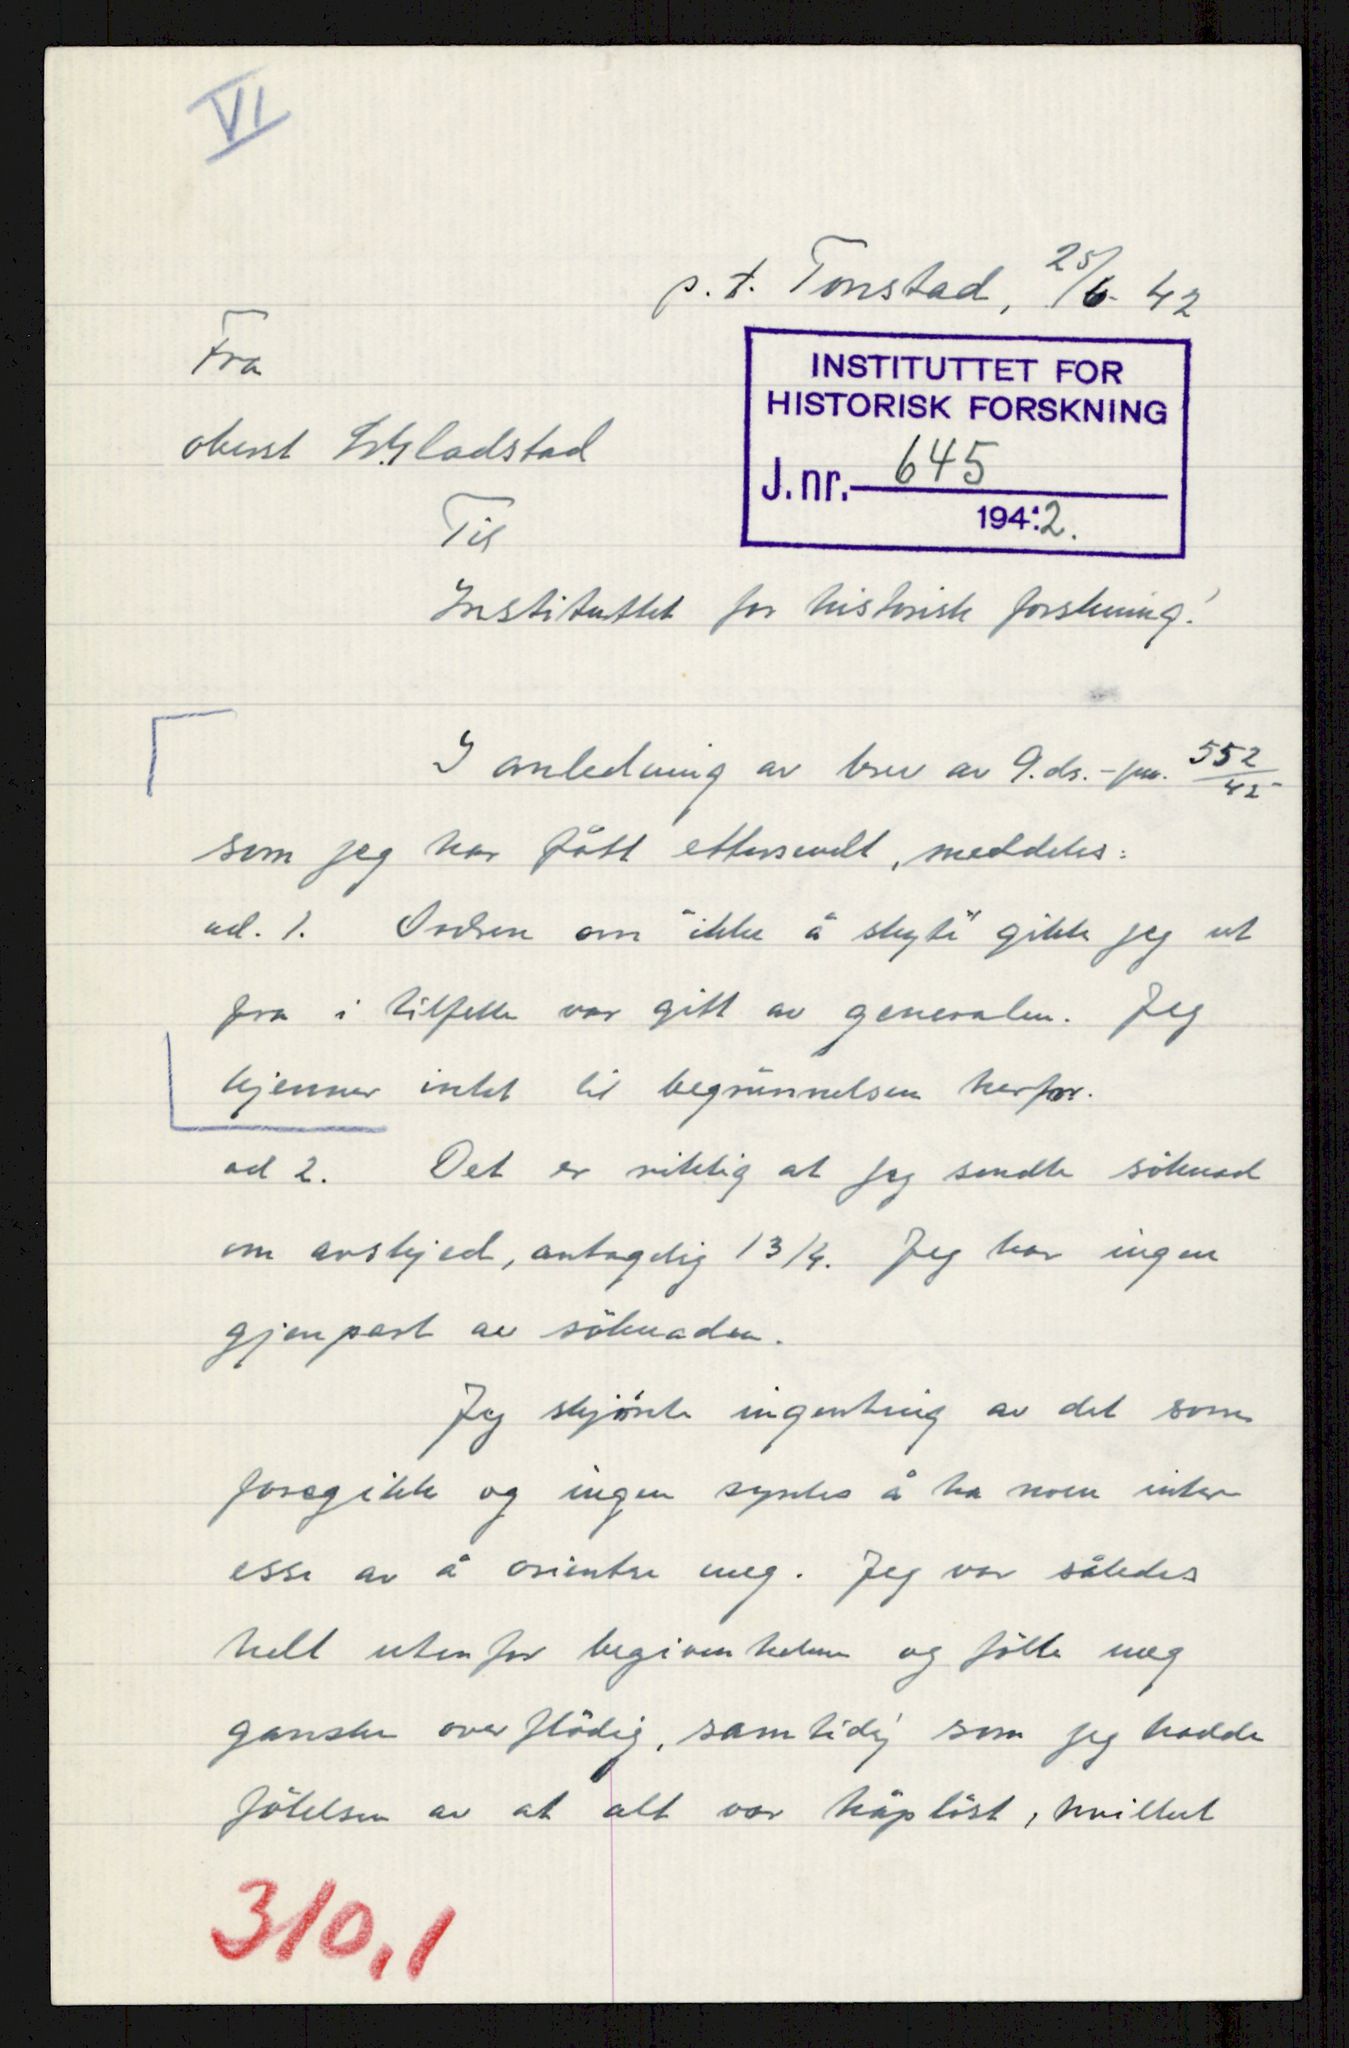 VI
p. t. Tonstad, 25/6. 42
Fra
oberst Gladstad
INSTITUTTET FOR
HISTORISK FORSKNING
J.nr. 645
194:2.
Til
Instituttet for historisk forskning!
I anledning av brev av 9. ds. - jnr. 552/42
som jeg har fått ettersendt, meddeles:
ad. 1. Ordren om "ikke å skyte" gikk jeg ut
fra i tilfelle var gitt av generalen. Jeg
kjenner intet til begrunnelsen herfor.
ad 2. Det er riktig at jeg sendte söknad
om avskjed, antagelig 13/4. Jeg har ingen
gjenpart av söknaden.
Jeg skjönte ingenting av det som
foregikk og ingen syntes å ha noen inter
esse av å orientere meg. Jeg var således
helt utenfor begivenhetene og fölte meg
ganske overflödig, samtidig som jeg hadde
fölelsen av at alt var håplöst, hvilket
310,1